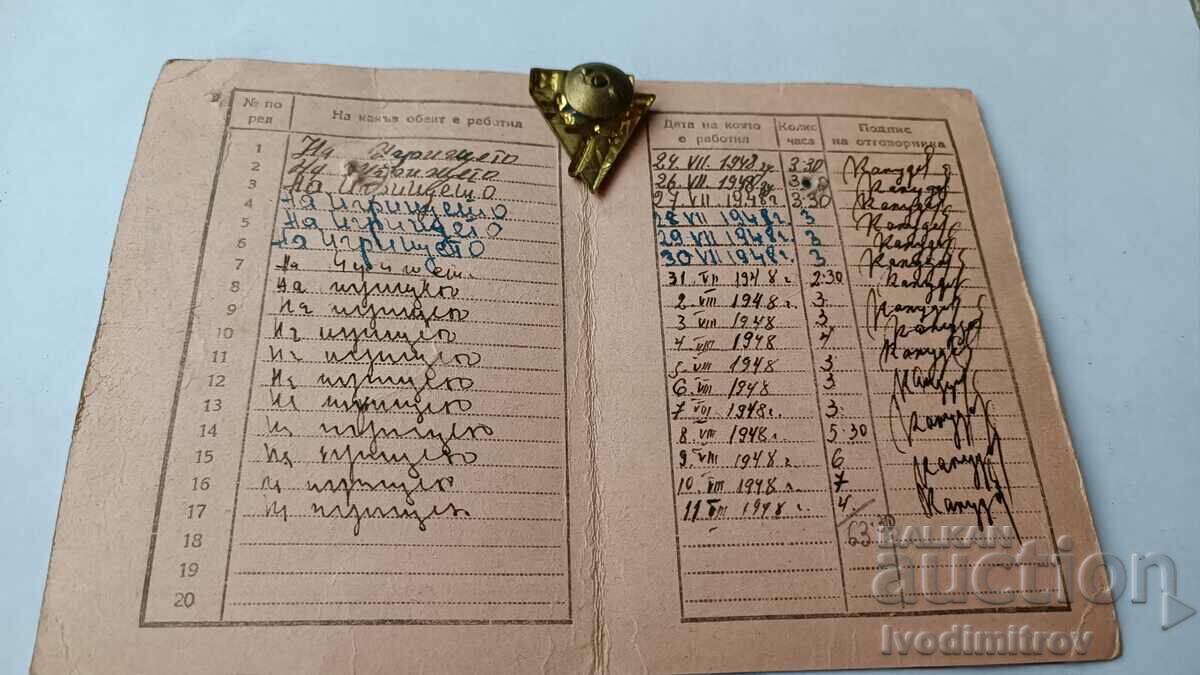 № по ред На какъв обект е работил Дата на която е работил Колко часа Подпис на отговорника
1 На игрището 24 VII. 1948 г 3:30
2 На игрището 26 VII. 1948 г
3 На игрището 27 VII. 1948 г 3:30
4 На игрището 28 VII 1948 г. 3
5 На игрището 29 VII 1948 г. 3
6 На игрището 30 VII 1948 г. 3
7 На 31. VII 1948 г 2:30
8 На игрището 2. VIII 1948 г. 3
9 На игрището 3 VIII 1948 3
10 На игрището 4 VIII 1948 4
11 На игрището 5. VIII 1948 3
12 На игрището 6. VIII 1948 3
13 На игрището 7 VIII 1948 г. 3
14 На игрището 8. VIII 1948 г. 5:30
15 На игрището 9. VIII 1948 г. 6
16 На игрището 10. VIII 1948 г. 7
17 На игрището 11 VIII 1948 г. 4
18 63 30
19
20
BALKAN
auction
Ivodimitrov